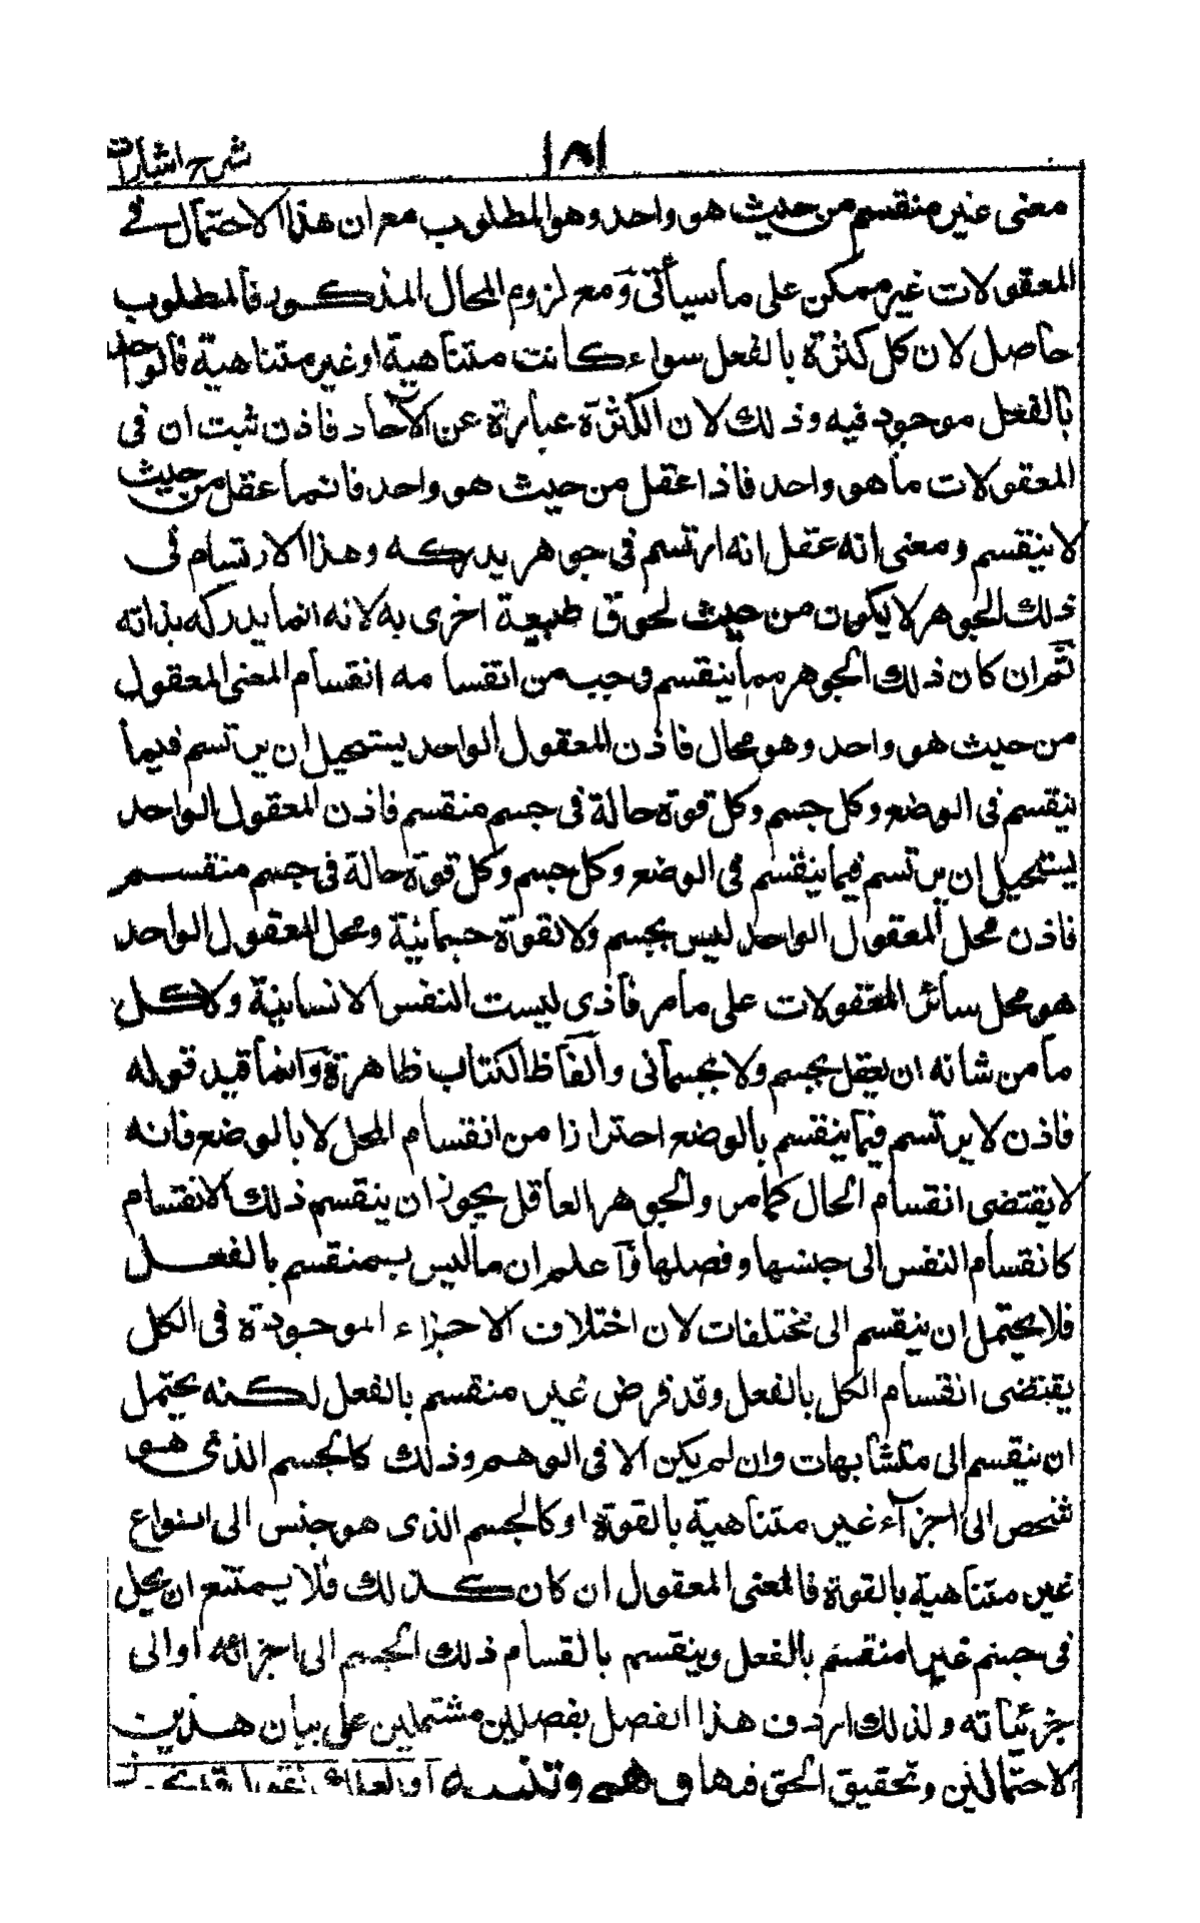 شرح اشارات
١٨١
معنى غير منقسم من حيث هو واحد وهو المطلوب مع ان هذا الاحتمال في
المعقولات غير ممكن على ما سيأتى ومع لزوم المحال المذكور فالمطلوب
حاصل لان كل كثرة بالفعل سواء كانت متناهية او غير متناهية فالواحد
بالفعل موجود فيه وذلك لان الكثرة عبارة عن الآحاد فاذن ثبت ان فى
المعقولات ما هو واحد فاذا عقل من حيث هو واحد فانما عقل من حيث
لا ينقسم ومعنى انه عقل انه ارتسم فى جوهر يدركه وهذا الارتسام فى
ذلك الجوهر لا يكون من حيث لحوق طبيعة اخرى به لانه انما يدركه بذاته
ثم ان كان ذلك الجوهر مما ينقسم وجب من انقسامه انقسام المعنى المعقول
من حيث هو واحد وهو محال فاذن المعقول الواحد يستحيل ان يرتسم فيما
ينقسم فى الوضع وكل جسم وكل قوة حالة فى جسم منقسم فاذن المعقول الواحد
يستحيل ان يرتسم فيما ينقسم فى الوضع وكل جسم وكل قوة حالة فى جسم منقسم
فاذن محل المعقول الواحد ليس بجسم ولا بقوة جسمانية ومحل المعقول الواحد
هو محل سائر المعقولات على ما مر فاذى ليست النفس الانسانية ولا كل
ما من شانه ان يعقل بجسم ولا بجسمانى والفاظ الكتاب ظاهرة وانما قيد قوله
فاذن لا يرتسم فيما ينقسم بالوضع احترازا من انقسام المحل لا بالوضع فانه
لا يقتضى انقسام الحال كما مر والجوهر العاقل يجوز ان ينقسم ذلك الانقسام
كانقسام النفس الى جنسها وفصلها واعلم ان ما ليس بمنقسم بالفعل
فلا يحتمل ان ينقسم الى مختلفات لان اختلاف الاجزاء الموجودة فى الكل
يقتضى انقسام الكل بالفعل وقد فرض غير منقسم بالفعل لكنه يحتمل
ان ينقسم الى متشابهات وان لم يكن الا فى الوهم وذلك كالجسم الذى هو
شخص الى اجزآء غير متناهية بالقوة او كالجسم الذى هو جنس الى انواع
غير متناهية بالقوة فالمعنى المعقول ان كان كذلك فلا يمتنع ان يحل
فى جسم غير منقسم بالفعل وينقسم بانقسام ذلك الجسم الى اجزائه او الى
جزئياته ولذلك اردف هذا الفصل بفصلين مشتملين على بيان هذين
الاحتمالين وتحقيق الحق فيها وهم وتنبيه او لعلك تقول قد يجوز